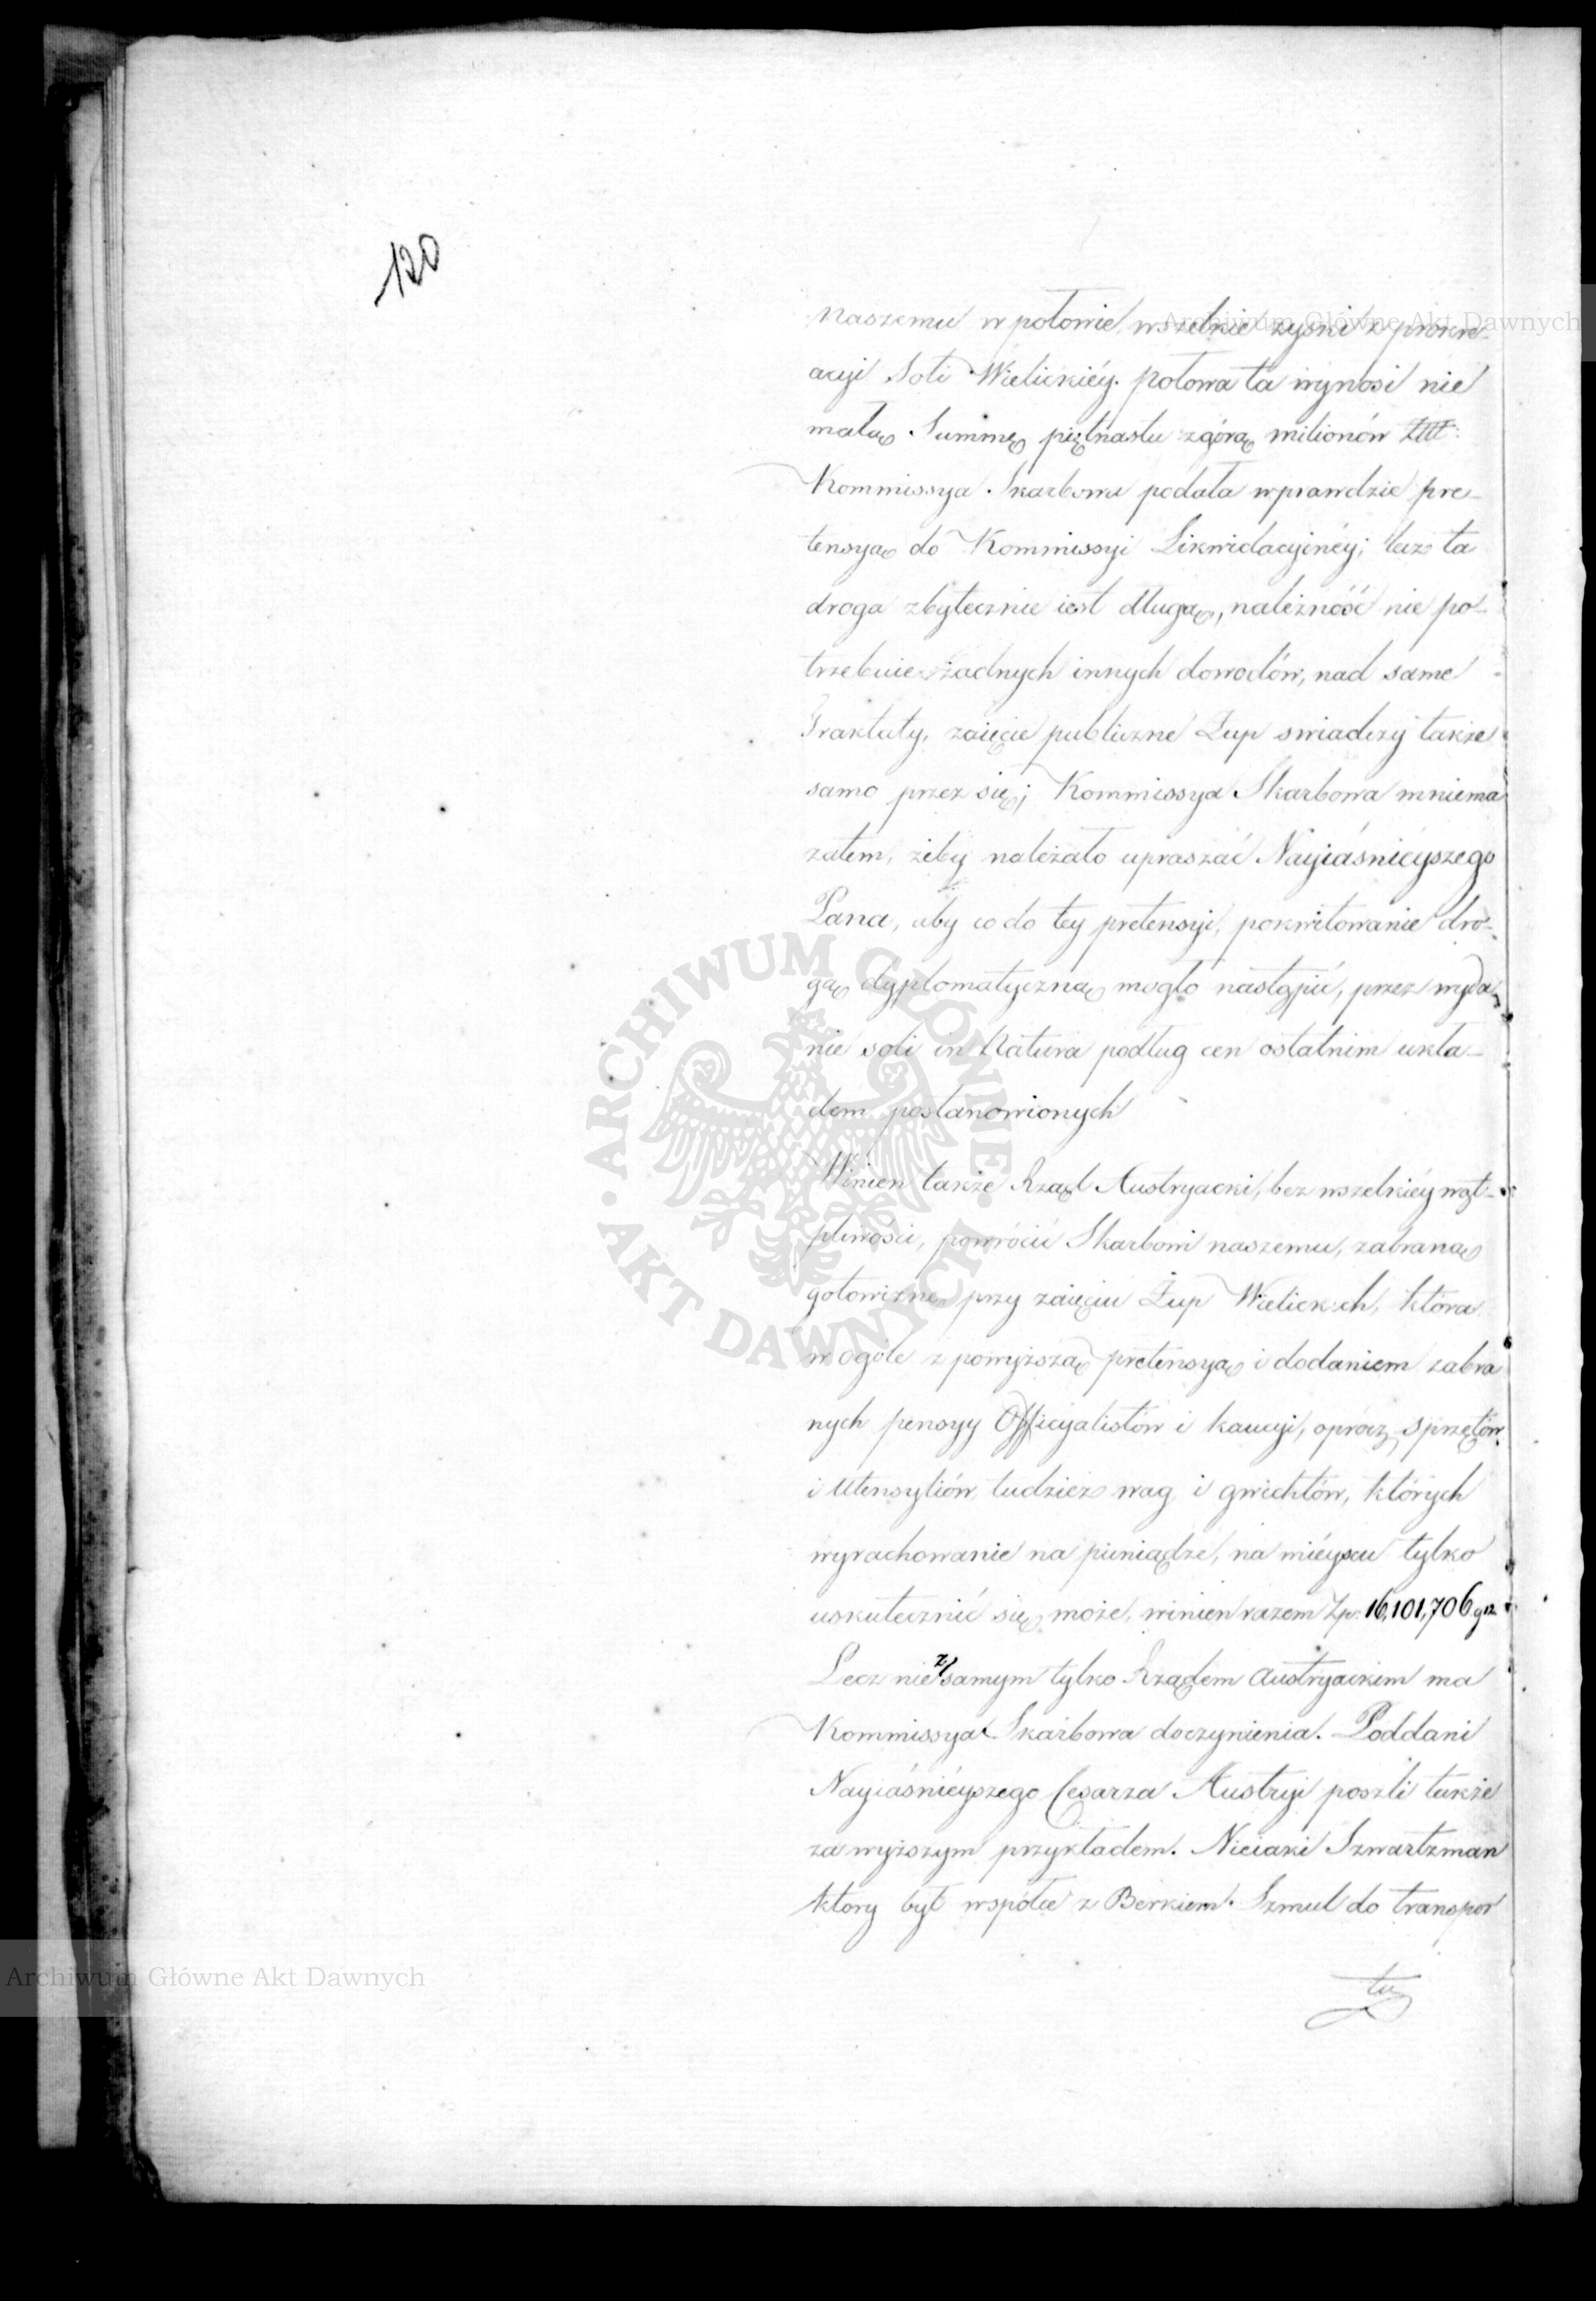 120
Archiwum Główne Akt Dawnych
naszemu w połowie, wszelkie zyski z prokre-
acyi Soli Wielickiéy. Połowa ta wynosi nie
małą Summę piętnastu zgórą milionów
Kommissya Skarbowa podała wprawdzie pre-
tensyą do Kommissyi Likwidacyinéy; lecz ta
droga zbytecznie iest długą, należność nie po-
trzebuie żadnych innych dowodów, nad same
Traktaty, zaięcie publiczne Żup swiadczy także
samo przez się; Kommissya Skarbowa mniema
zatem, żeby należało upraszać Nayiaśnieyszego
Pana, aby co do tey pretensyi, pokwitowanie dro-
gą dyplomatyczną mogło nastąpić, przez wyda-
nie soli in Natura podług cen ostatnim ukła-
dem postanowionych
Winien także Rząd Austryacki, bez wszelkiéy wąt-
pliwości, powrócić Skarbowi naszemu, zabraną
gotowiznę przy zaięciu Żup Wielickich, która
w ogóle z powyższą pretensyą i dodaniem zabra
nych pensyy Officyalistów i kaucyi, oprócz sprzętów
i Utensyliów, tudzież wag i gwichtów, których
wyrachowanie na pieniądze, na miéyscu tylko
uskutecznić się może, winien razem Zp. 16,101,706 g 12
Lecz nie z samym tylko Rządem Austryackim ma
Kommissya Skarbowa doczynienia. Poddani
Nayiaśnieyszego Cesarza Austryi poszli także
za wyższym przykładem. Nieiaki Szwartzman
ktory był wspólce z Berkiem Szmul do transpor
tu
ARCHIWUM GŁÓWNE AKT DAWNYCH
Archiwum Główne Akt Dawnych